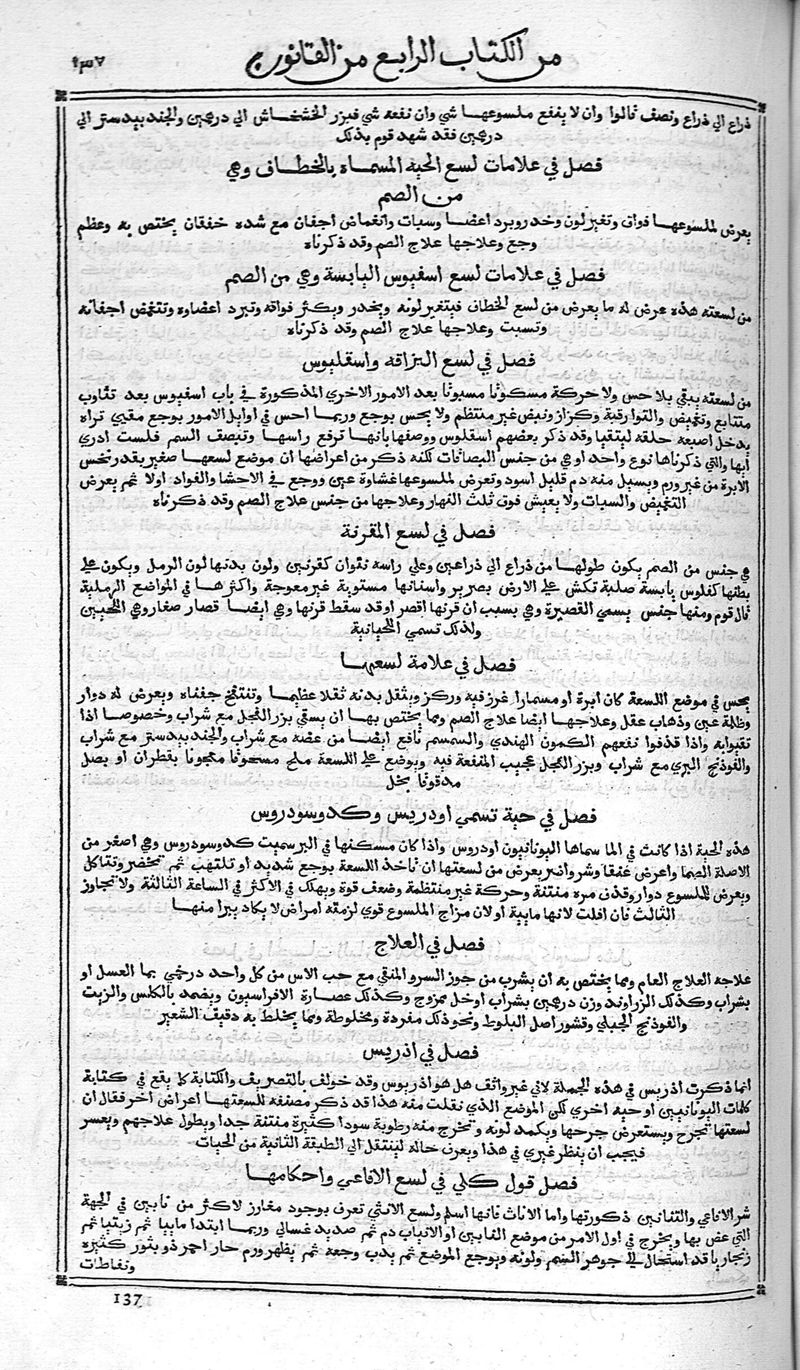 من الكتاب الرابع من القانون
١٣٧
ذراع الي ذراع ونصف قالوا وان لا ينفع ملسوعها شي وان نفعه شي فبزر الخشخاش الي درهمين والجندبيدستر الي
درهمين فقد شهد قوم بذلك
فصل في علامات لسع الحية المسماة بالخطاف وهي
من الصم
يعرض لملسوعها فواق وتغير لون وخدر وبرد اعضا وسبات وانغماض اجفان مع شدة خفقان يختص به وعظم
وجع وعلاجها علاج الصم وقد ذكرناه
فصل في علامات لسع اسفيوس اليابسة وهي من الصم
من لسعته هذه عرض له ما يعرض من لسع الخطاف فيتغير لونه ويخدر ويكثر فواقه وتبرد اعضاوه وتتغمض اجفانه
وتسبت وعلاجها علاج الصم وقد ذكرناه
فصل في لسع البزاقة واسقليوس
من لسعته يبقي بلا حس ولا حركة مسكوتا مسبوتا بعد الامور الاخري المذكورة في باب اسفيوس بعد تثاوب
متتابع وتغميض والتوا رقبة وكزاز ونبض غير منتظم ولا يحس بوجع وربما احس في اوايل الامور بوجع مقيي تراه
يدخل اصبعه حلقه ليتقيا وقد ذكر بعضهم اسقلوس ووصفها بانها ترفع راسها وتبصق السم فلست ادري
ايها والتي ذكرناها نوع واحد او هي من جنس البصاقات لكنه ذكر من اعراضها ان موضع لسعها صغير بقدر نخس
الابرة من غير ورم ويسيل منه دم قليل اسود وتعرض لملسوعها غشاوة عين ووجع في الاحشا والفواد اولا ثم يعرض
التغميض والسبات ولا يعيش فوق ثلث النهار وعلاجها من جنس علاج الصم وقد ذكرناه
فصل في لسع المقرنة
هي جنس من الصم يكون طولها من ذراع الي ذراعين وعلي راسه نتوان كقرنين ولون بدنها لون الرمل ويكون علي
بطنها كفلوس يابسة صلبة تكش علي الارض بصرير واسنانها مستوية غير معوجة واكثرها في المواضع الرملية
قال قوم ومنها جنس يسمي القصيرة وهي بسبب ان قرنها اقصر او قد سقط قرنها وهي ايضا قصار صغار وهي اللحيين
ولذلك تسمي اللحيانية
فصل في علامة لسعها
يحس في موضع اللسعة كان ابرة او مسمارا غرز فيه وركز ويثقل بدنه ثقلا عظيما وتنتفخ جفناه ويعرض له دوار
وظلمة عين وذهاب عقل وعلاجها ايضا علاج الصم ومما يختص بها ان يسقي بزر الفجل مع شراب وخصوصا اذا
تقيوابه واذا قذفوا نفعهم الكمون الهندي والسمسم نافع ايضا من عضه مع شراب والجندبيدستر مع شراب
والفوذنج البري مع شراب وبزر الفجل عجيب المنفعة فيه ويوضع علي اللسعة ملح مسحوقا معجونا بقطران او بصل
مدقوقا بخل
فصل في حية تسمي اودريس وكدوسودروس
هذه الحية اذا كانت في الما سماها اليونانيون اودروس واذا كان مسكنها في البر سميت كدوسودروس وهي اصغر من
الاصلة الصما واعرض عنقا وشر وانه يعرض من لسعتها ان ناخذ اللسعة بوجع شديد او تلتهب ثم تخضر وتتاكل
ويعرض للملسوع دوار وقذف مرة منتنة وحركة غير منتظمة وضعف قوة ويهلك في الاكثر في الساعة الثالثة ولا يتجاوز
الثالث فان افلت لانها مايية او لان مزاج الملسوع قوي لزمته امراض لا يكاد يبرا منها
فصل في العلاج
علاجه العلاج العام ومما يختص به ان يشرب من جوز السرو المنقي مع حب الاس من كل واحد درخمي بما العسل او
بشراب وكذلك الزراوند وزن درهمين بشراب او خل ممزوج وكذلك عصارة الافراسيون ويضمد بالكلس والزيت
والفوذنج الجبلي وقشور اصل البلوط ونحو ذلك مفردة ومخلوطة ومما يخلط به دقيق الشعير
فصل في اذريس
انما ذكرت اذريس في هذه الجملة لاني غير واثق هل هو اذريوس وقد خولف بالتصريف والكتابة كما يقع في كتابة
كلمات اليونانيين او حية اخري لكن الموضع الذي نقلت منه هذا قد ذكر مصنفه للسعتها اعراض اخر فقال ان
لسعتها تجرح ويستعرض جرحها ويكمد لونه وتخرج منه رطوبة سودا كثيرة منتنة جدا ويطول علاجهم ويعسر
فيجب ان ينظر غيري في هذا ويعرف حاله لينتقل الي الطبقة الثانية من الحيات
فصل قول كلي في لسع الافاعي واحكامها
شر الافاعي والتنانين ذكورتها واما الاناث فانها اسلم ولسع الانثي تعرف بوجود مغارز لاكثر من نابين في الجهة
التي عض بها ويخرج في اول الامر من موضع النابين او الانياب دم ثم صديد غسالي وربما ابتدا ماييا ثم زيتيا ثم
زنجاريا قد استحال الي جوهر السم ولونه ويوجع الموضع ثم يدب وجعه ثم يظهر ورم حار احمر ذو بثور كثيرة
ونفاطات
137